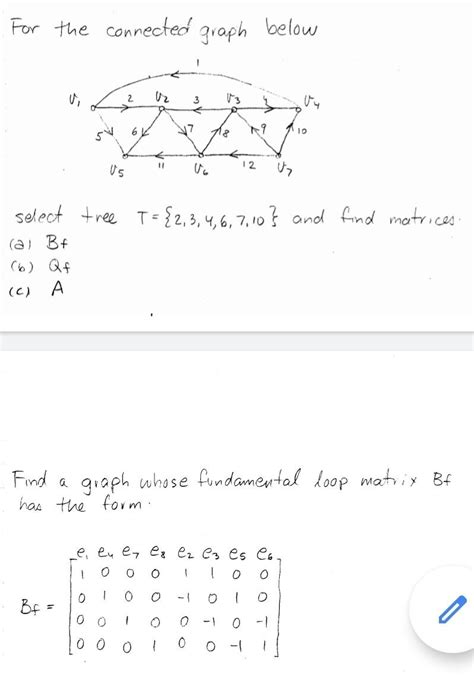 For the connected graph below
1
v1 2 v2 3 v3 4 v4
5 6 7 8 9 10
v5 11 v6 12 v7
select tree T={2,3,4,6,7,10} and find matrices.
(a) Bf
(b) Qf
(c) A
Find a graph whose fundamental loop matrix Bf
has the form.
e1 e4 e7 e8 e2 e3 e5 e6
1 0 0 0 1 1 0 0
0 1 0 0 -1 0 1 0
Bf =
0 0 1 0 0 -1 0 -1
0 0 0 1 0 0 -1 1